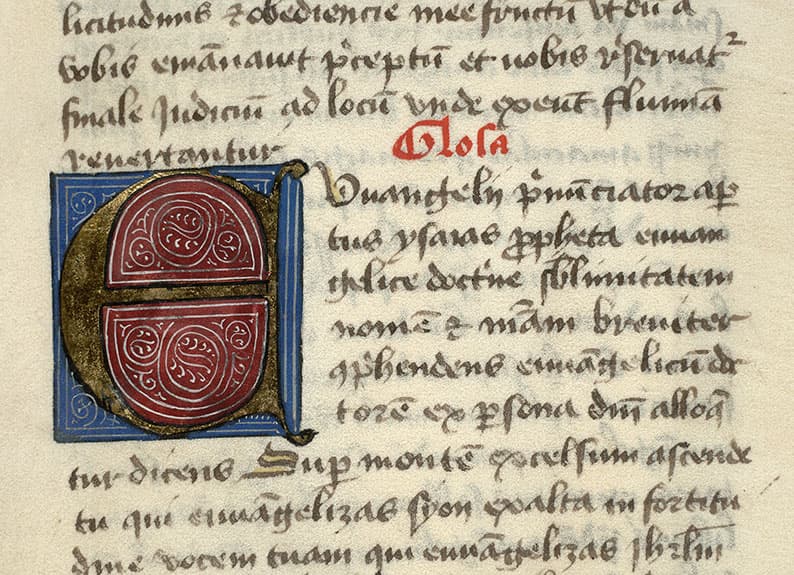 licitudinis & obediencie mee fructū vt cū a
vobis emānauit p̄ceptū et nobis r̄seruat᷑
finale Iudiciū ad locū vnde exeūt flumīa
reuertantur Glosa
Euuangelij p̄nūciator ap̄
tus ysaias ꝓpheta euuan
gelice doctͥne sb̄limitatem
nomē & mām breuiter
ꝯp̄hendens euuāgelicū doc
torē ex ꝑsona dnī alloq̄
tur dicens Suꝑ montē excelsum ascende
tu qui euuāgelizas syon exalta in fortitu
dīne vocem tuam qui euuāgelizas Ihrl̄m